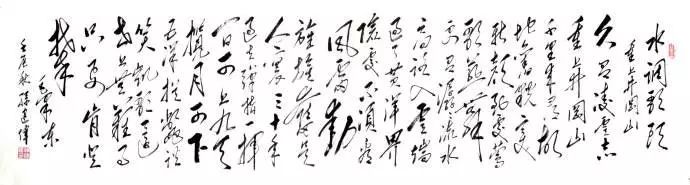 水调歌头
重上井冈山
久有凌云志
重上井冈山
千里来寻故
地旧貌变
新颜到处莺
歌燕舞
更有潺潺流水
高路入云端
过了黄洋界
险处不须看
风雷动
旌旗奋是
人寰三十八年
过去弹指一挥
间可上九天
揽月可下
五洋捉鳖谈
笑凯歌还
世上无难事
只要肯登
攀
毛泽东
壬辰秋